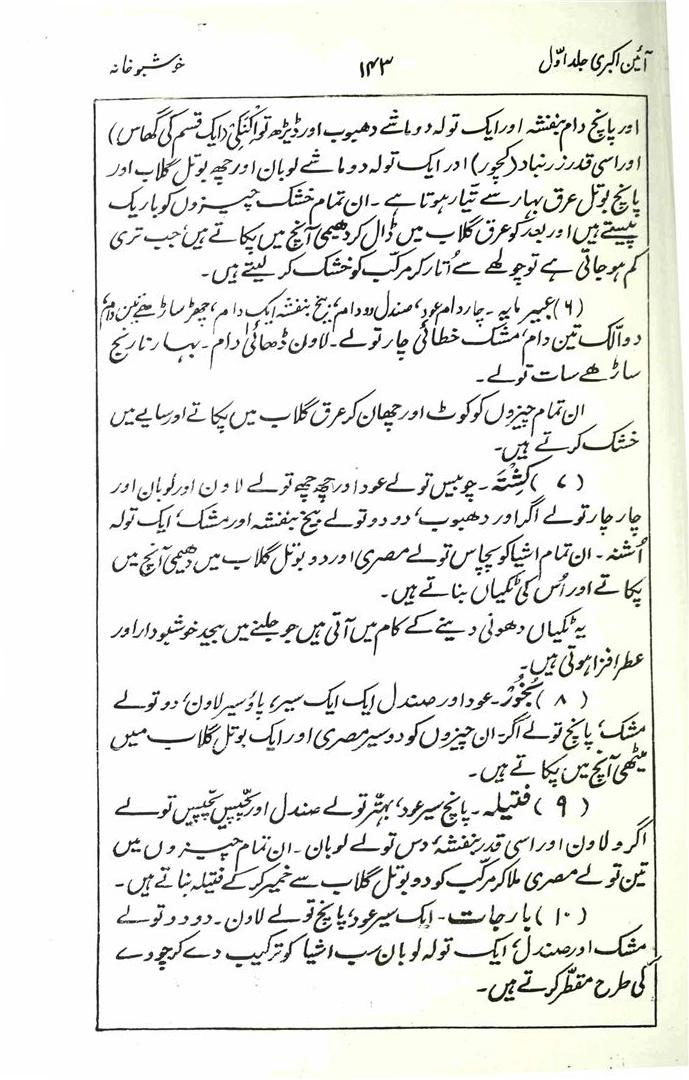 آئین اکبری جلد اوّل
۱۴۳
خوشبو خانہ
اور پانچ دام بنفشہ اور ایک تولہ دو ماشے دھبوب اور ڈیڑھ تو اکنکی (ایک قسم کی گھاس)
اور اسی قدر زرنباد (کچور) اور ایک تولہ دو ماشے لوبان اور چھ بوتل گلاب اور
پانچ بوتل عرق بہار سے تیار ہوتا ہے ۔ ان تمام خشک چیزوں کو باریک
پیستے ہیں اور بعد کو عرق گلاب میں ڈال کر دھیمی آنچ میں پکاتے ہیں‘ جب تری
کم ہو جاتی ہے تو چولھے سے اُتار کر مرکب کو خشک کر لیتے ہیں۔
(۶) عبیر مایہ ۔ چار دام عود‘ صندل دو دام‘ بیخ بنفشہ ایک دام‘ چھڑ ساڑھے تین دام‘
دوالک تین دام‘ مشک خطائی چار تولے ۔ لاون ڈھائی دام ۔ بہار نارنج
ساڑھے سات تولے ۔
ان تمام چیزوں کو کوٹ اور چھان کر عرق گلاب میں پکاتے اور سایے میں
خشک کرتے ہیں۔
(۷) کِشتَہ ۔ چوبیس تولے عود اور چھ چھ تولے لاون اور لوبان اور
چار چار تولے اگر اور دھبوب‘ دو دو تولے بیخ بنفشہ اور مشک‘ ایک تولہ
اُشنہ ۔ ان تمام اشیا کو پچاس تولے مصری اور دو بوتل گلاب میں دھیمی آنچ میں
پکاتے اور اُس کی ٹکیاں بناتے ہیں۔
یہ ٹکیاں دھونی دینے کے کام میں آتی ہیں جو جلنے میں بیحد خوشبودار اور
عطر افزا ہوتی ہیں۔
(۸) بُخُور ۔ عود اور صندل ایک ایک سیر‘ پاؤ سیر لاون‘ دو تولے
مشک‘ پانچ تولے اگر ۔ ان چیزوں کو دو سیر مصری اور ایک بوتل گلاب میں
میٹھی آنچ میں پکاتے ہیں۔
(۹) فتیلہ ۔ پانچ سیر عود‘ بہتّر تولے صندل اور پچّیس پچّیس تولے
اگر و لاون اور اسی قدر بنفشہ‘ دس تولے لوبان ۔ ان تمام چیزوں میں
تین تولے مصری ملا کر مرکّب کو دو بوتل گلاب سے خمیر کر کے فتیلہ بناتے ہیں۔
(۱۰) بارجات ۔ ایک سیر عود‘ پانچ تولے لاون ۔ دو دو تولے
مشک اور صندل‘ ایک تولہ لوبان سب اشیا کو ترکیب دے کر چووے
کی طرح مقطّر کرتے ہیں۔